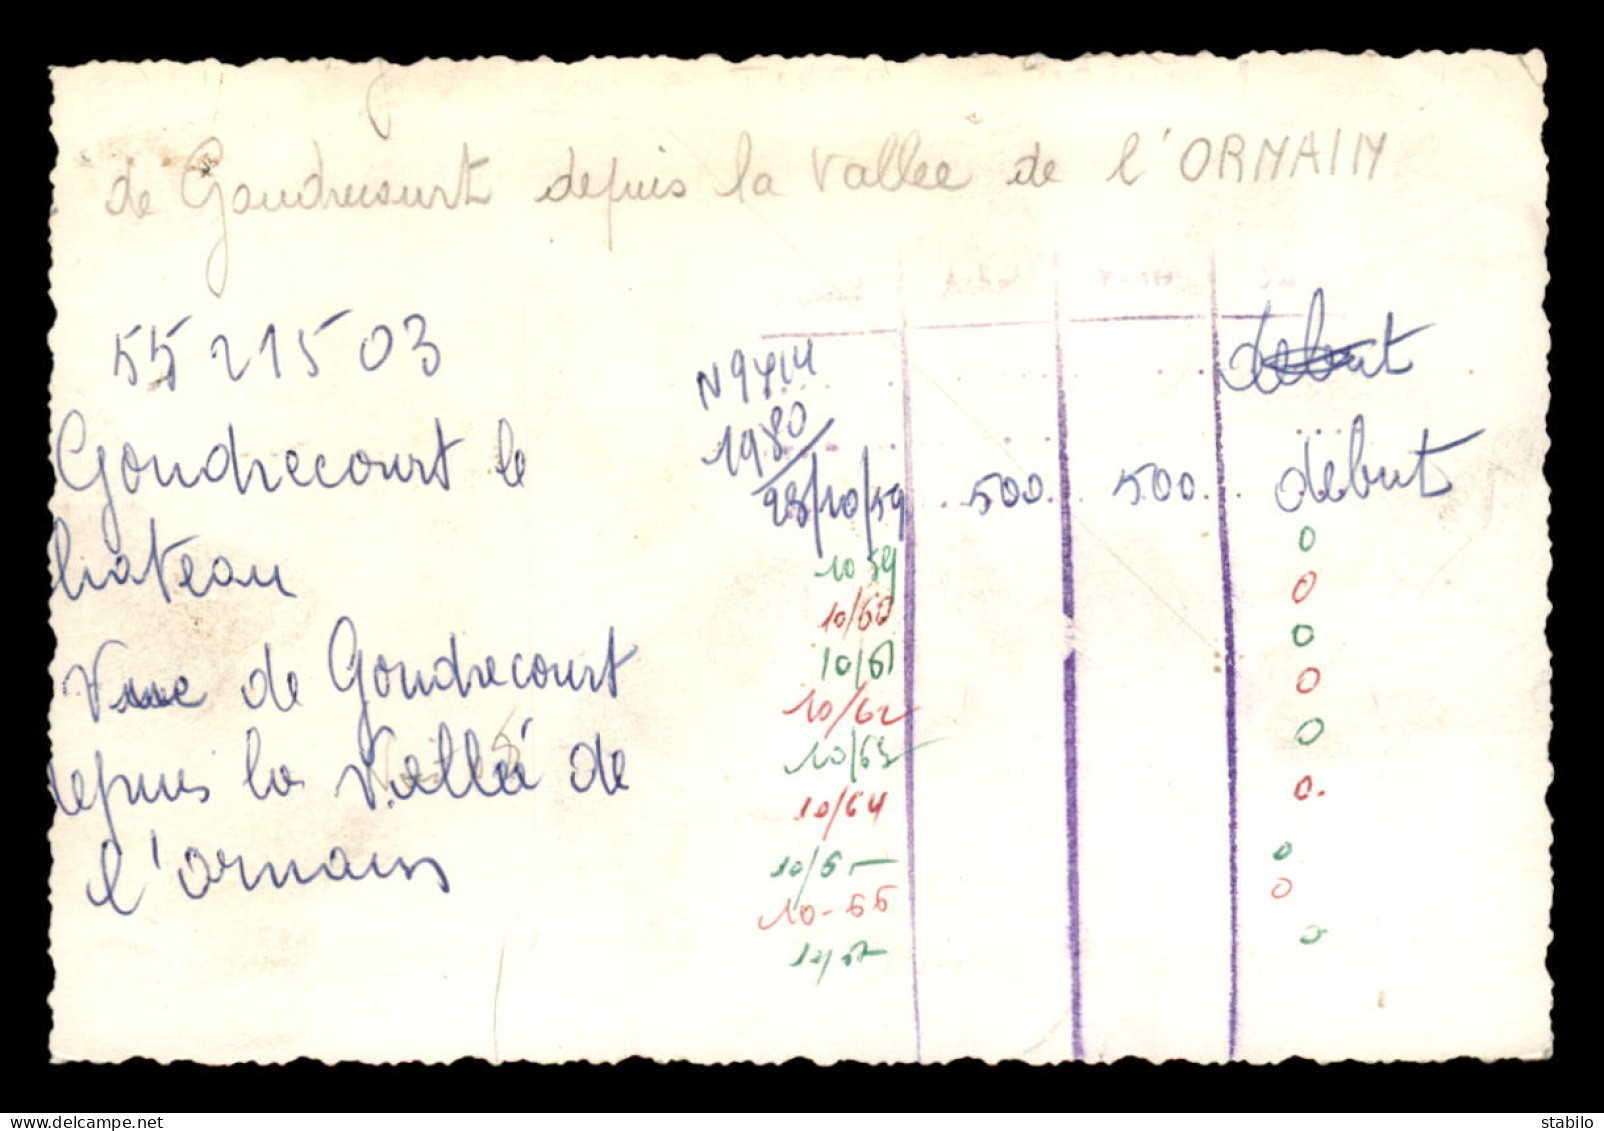 de Gondrecourt depuis la vallee de l'ORNAIN
55 21503
Gondrecourt le
hateau
Vue de Gondrecourt
depuis la Vallée de
l'ornain
1980
28/10/59 500 500 debut
debut
10 59 0
10/60 0
10/61 0
10/62 0
10/63 0
10/64 0.
10/65 0
10-66 0
10/67 0
stabilo